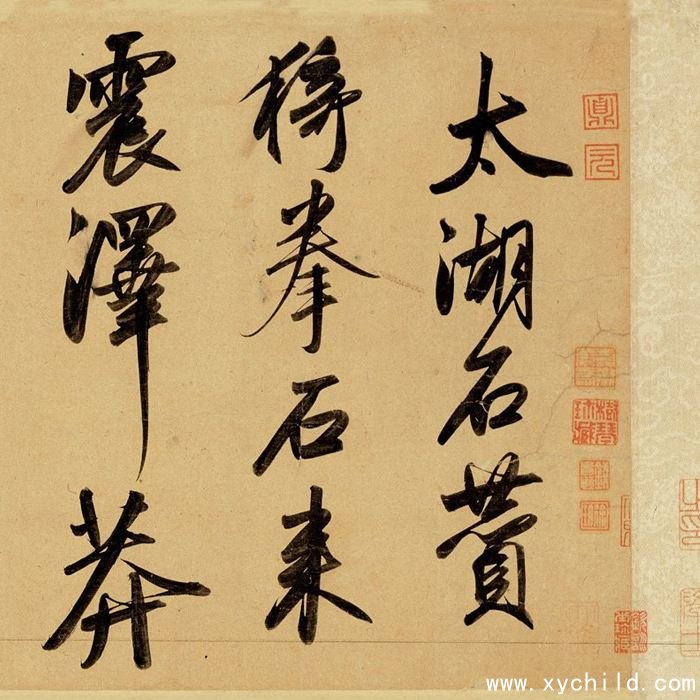 太湖石贊
猗拳石来
震澤莽
貞
元
www.xychild.com